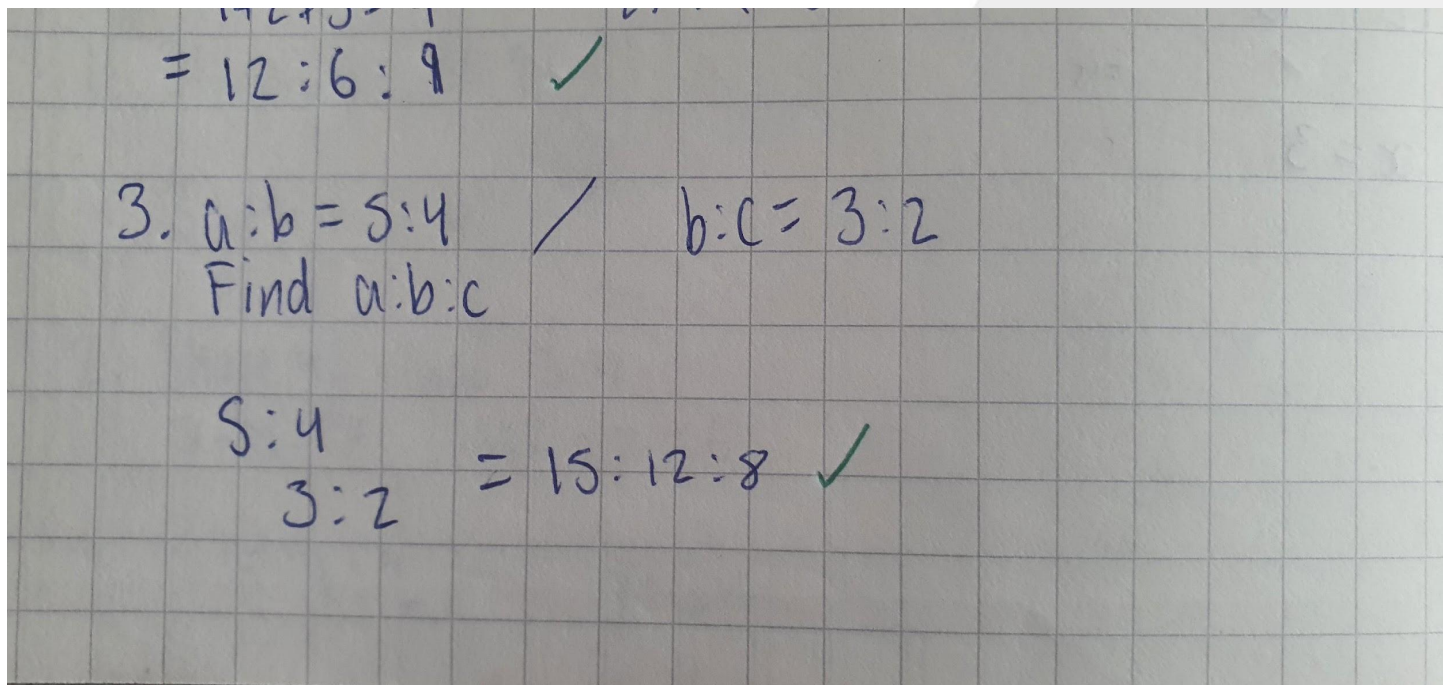 = 12 : 6 : 9 ✓
3. a:b = 5:4 / b:c = 3:2
Find a:b:c
5:4
3:2 = 15:12:8 ✓